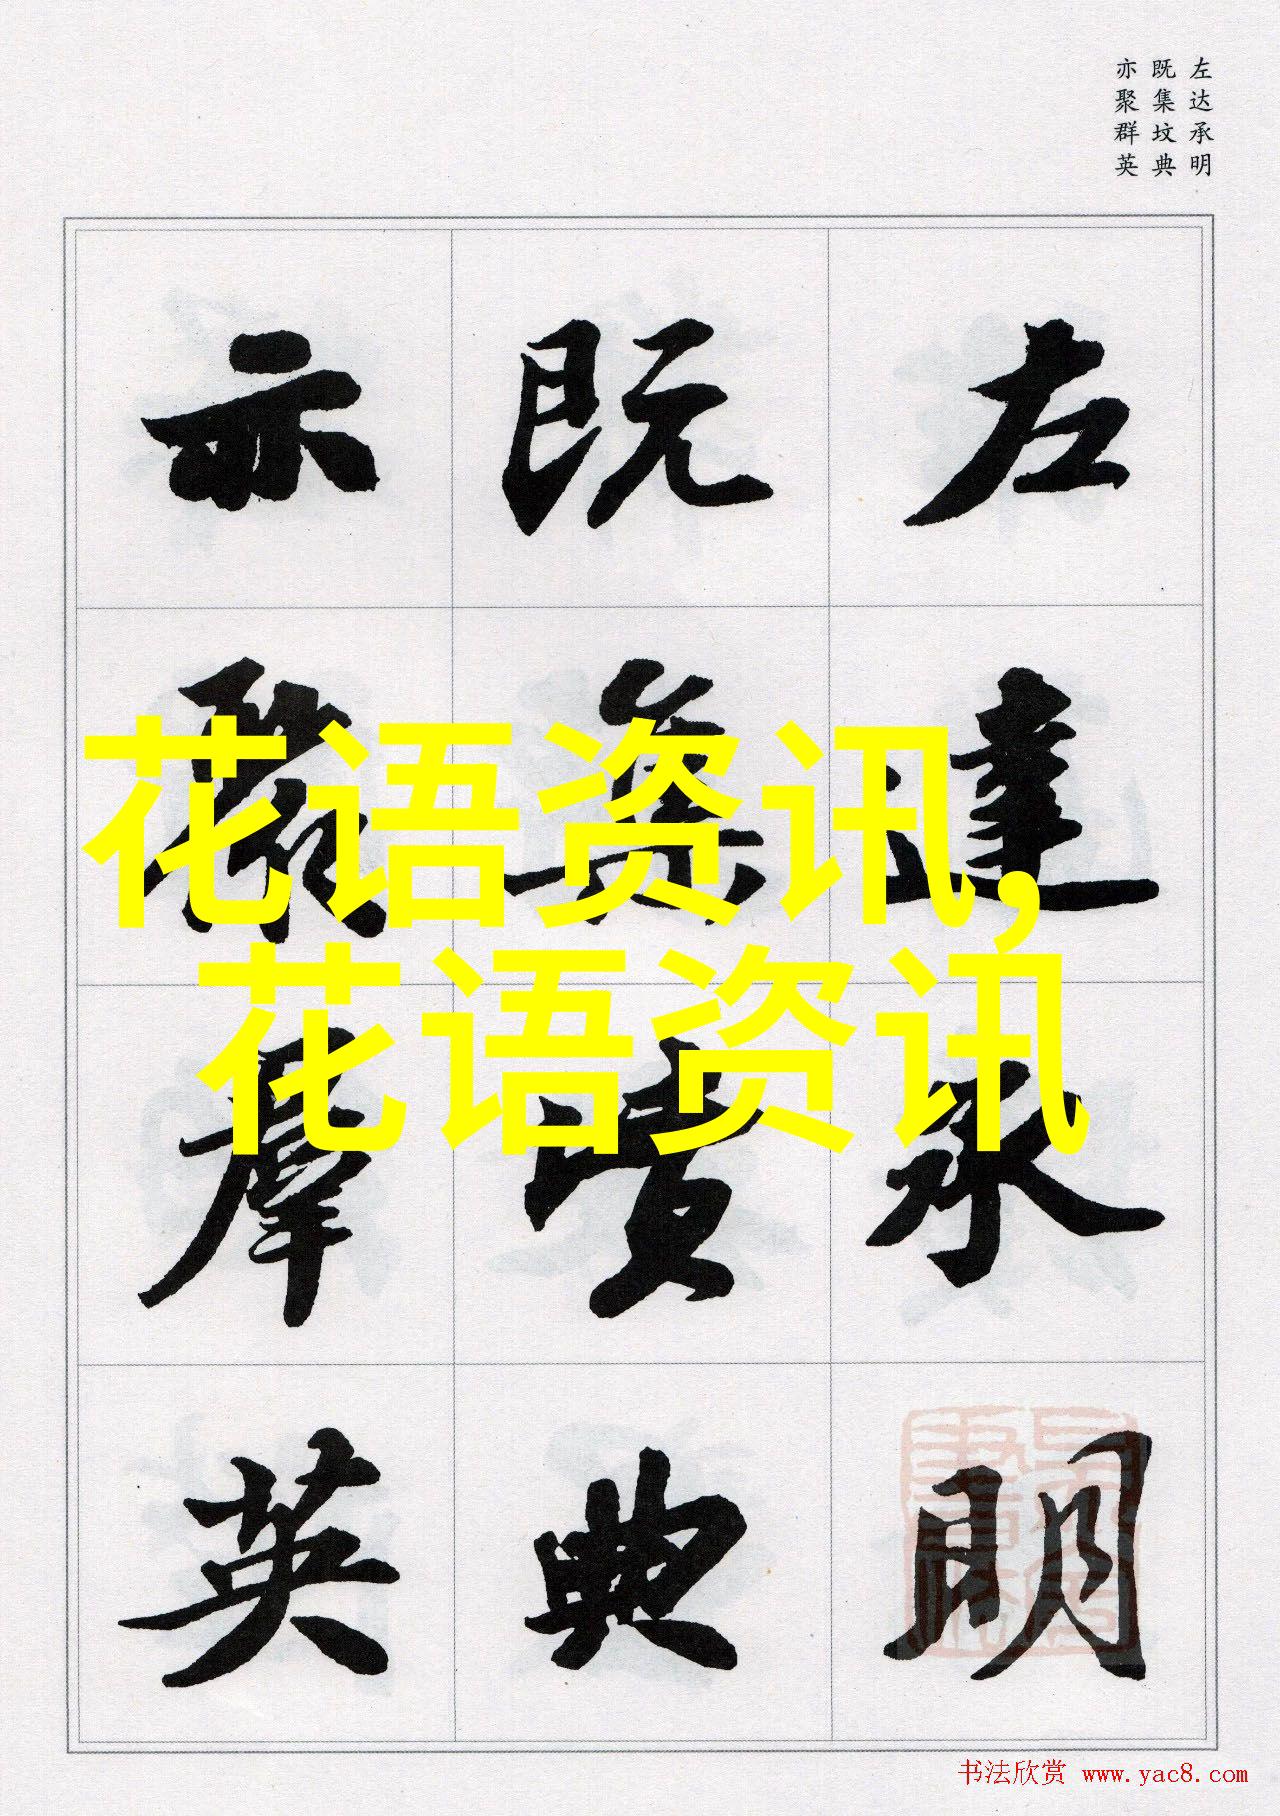 左达承明
既集坟典
亦聚群英
左達承明
既集墳典
亦聚羣英
花语资讯,
花语资讯
书法欣赏 www.yac8.com